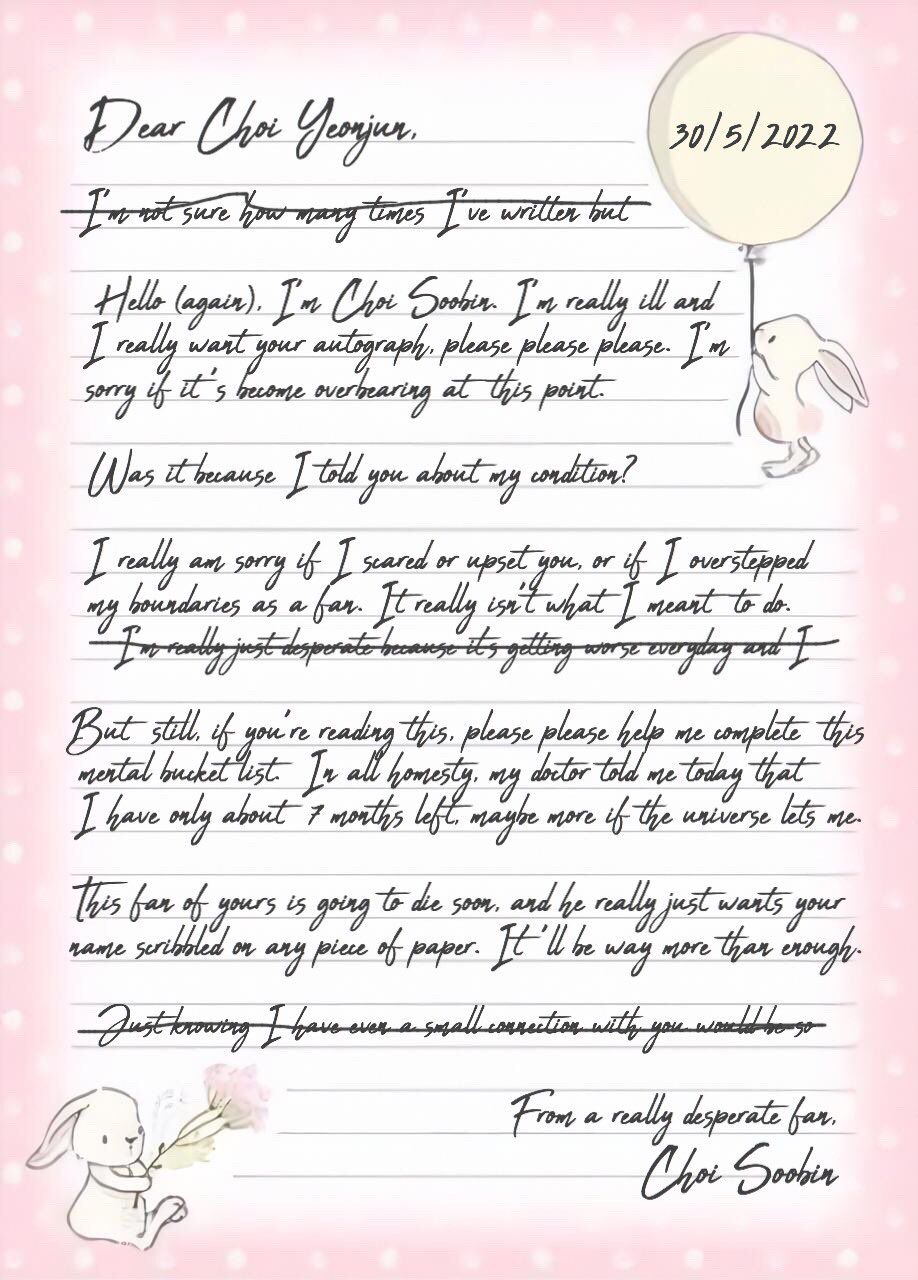 Dear Choi Yeonjun,
30/5/2022
I'm not sure how many times I've written but
Hello (again), I'm Choi Soobin. I'm really ill and
I really want your autograph, please please please. I'm
sorry if it's become overbearing at this point.
Was it because I told you about my condition?
I really am sorry if I scared or upset you, or if I overstepped
my boundaries as a fan. It really isn't what I meant to do.
I'm really just desperate because it's getting worse everyday and I
But still, if you're reading this, please please help me complete this
mental bucket list. In all homesty, my doctor told me today that
I have only about 7 months left, maybe more if the universe lets me.
This fan of yours is going to die soon, and he really just wants your
name scribbled on any piece of paper. It'll be way more than enough.
Just knowing I have even a small connection with you would be so
From a really desperate fan,
Choi Soobin